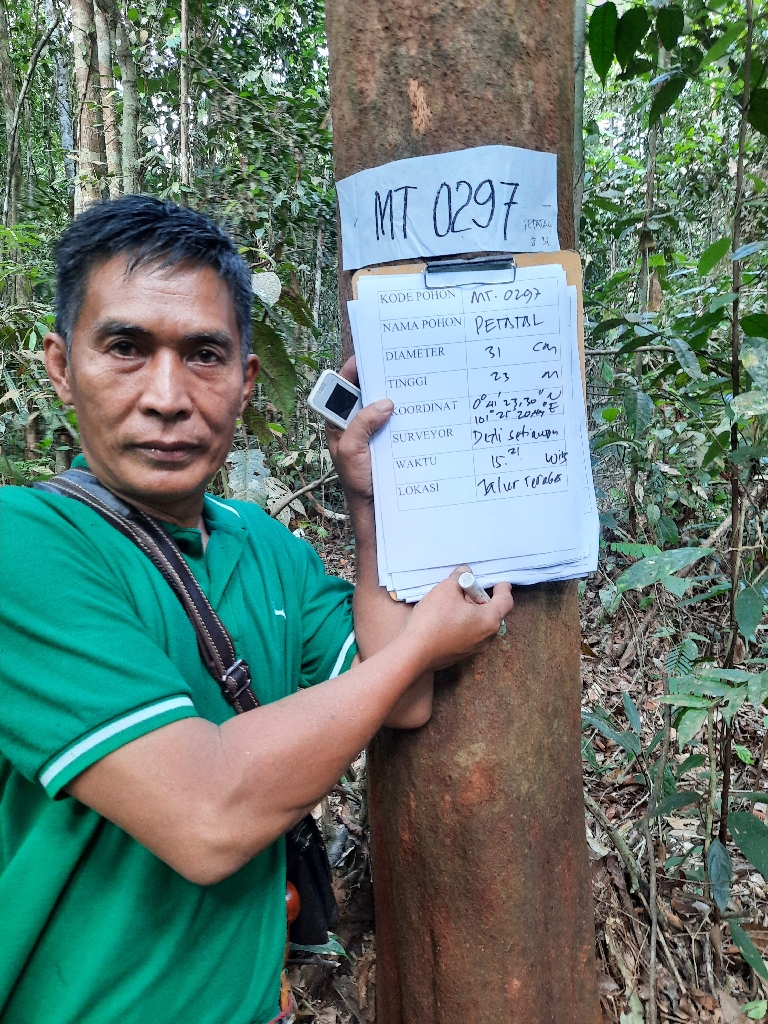 MT 0297
PETATAL
Ø 31
KODE POHON MT. 0297
NAMA POHON PETATAL
DIAMETER 31 Cm
TINGGI 23 M
KOORDINAT 0° 41' 23,30" N
101° 25' 20
SURVEYOR Dedi setiawan
WAKTU 15.21 Wib
LOKASI Jalur